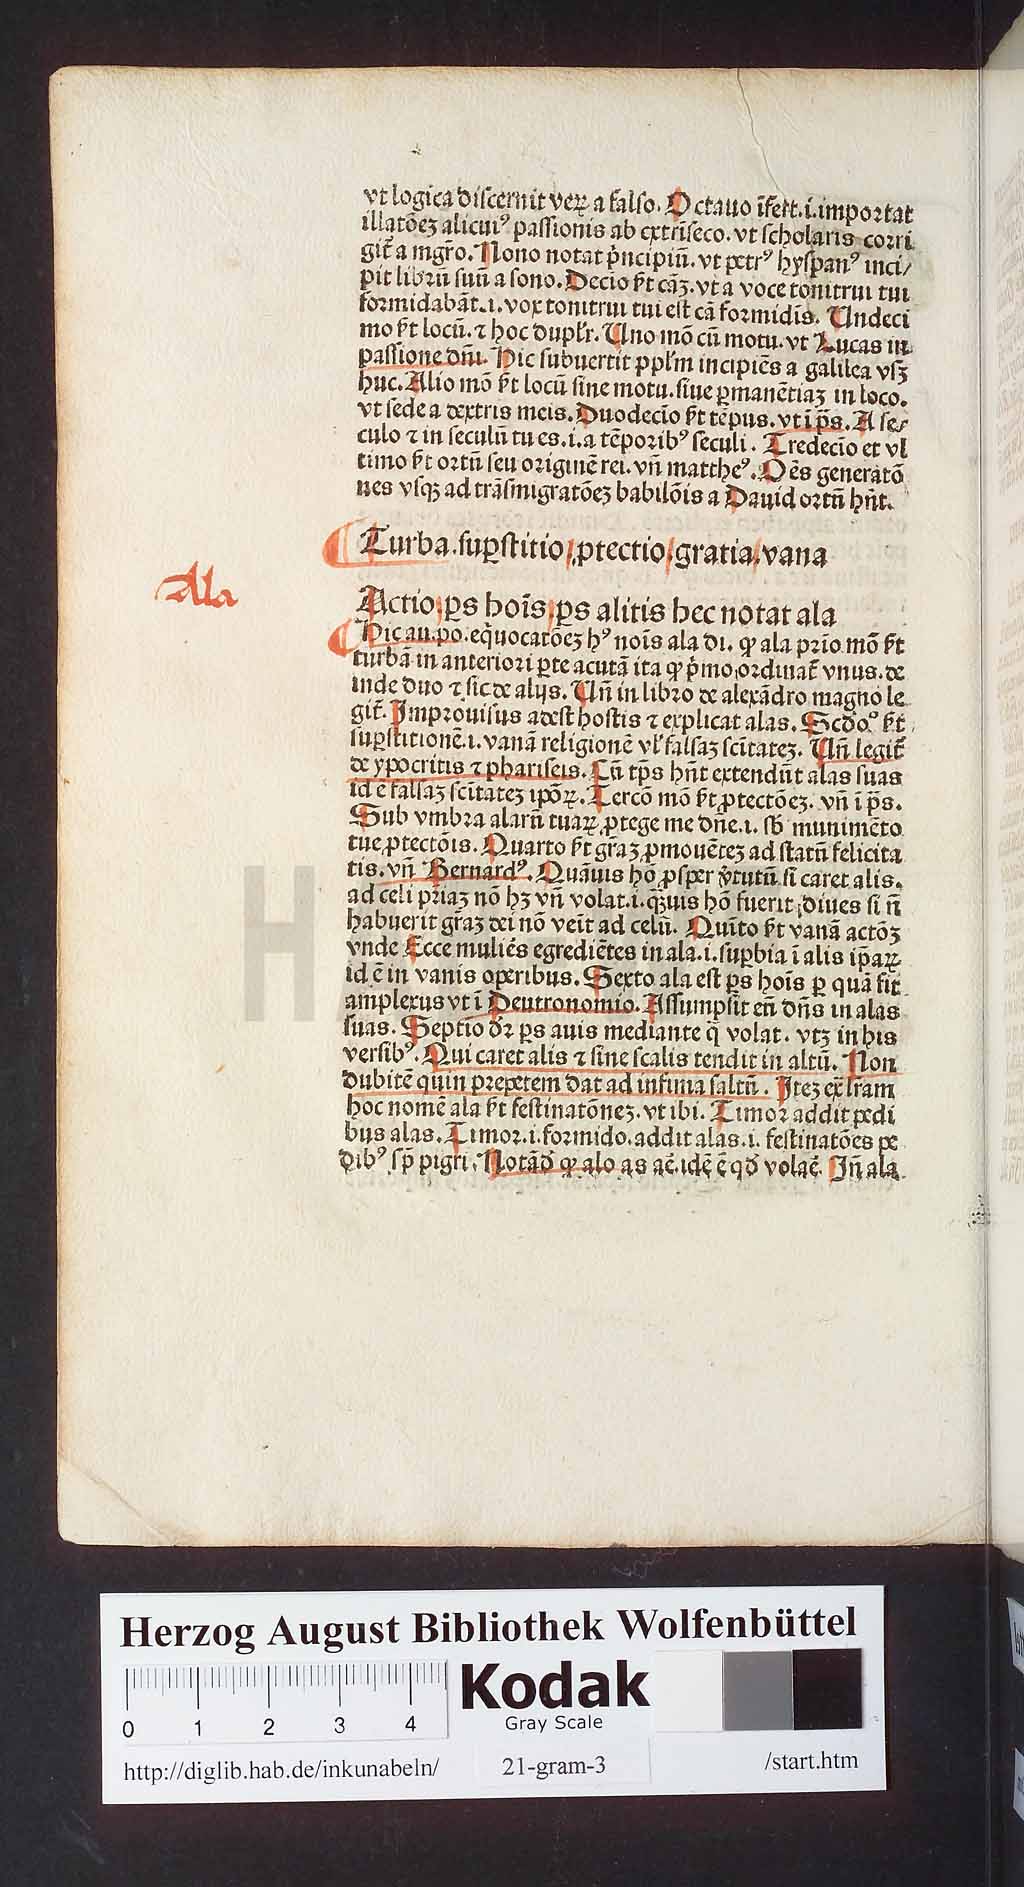 vt logica discernit veꝝ a falso. Octauo īfert .i. importat
illatōeꝫ alicuiꝰ passionis ab extrīseco. vt scholaris corri
git᷑ a mgr̄o. Nono notat p̄ncipiū. vt petrꝰ hyspanꝰ inci/
pit librū suū a sono. Decīo ſt cāꝫ. vt a voce tonitrui tui
formidabāt .i. vox tonitrui tui est cā formidīs. Undeci
mo ſt locū. ⁊ hoc duplr̄. Uno mō cū motu. vt Lucas in
passione dn̄i. Hic subuertit ppl̄m incipiēs a galilea vsꝫ
huc. Alio mō ſt locū sine motu. siue ꝑmanētiaꝫ in loco.
vt sede a dextris meis. Duodecīo ſt tēpus. vt ī ps̄. A se/
culo ⁊ in seculū tu es .i. a tēporibꝰ seculi. Tredecīo et vl
timo ſt ortū seu originē rei. vn̄ mattheꝰ. Oēs generatō
nes vsqꝫ ad trāsmigratōeꝫ babilōis a Dauid ortū hn̄t.
Turba. suꝑstitio / ꝓtectio / gratia / vana
Ala
Actio / ꝑs hoīs / ꝑs alitis hec notat ala
Hic au. po. eq̄uocatōeꝫ hꝰ noīs ala di. ꝙ ala prīo mō ſt
turbā in anteriori ꝑte acutā ita ꝙ p̄mo ordinat᷑ vnus. de
inde duo ⁊ sic de alijs. Un̄ in libro de alexādro magno le
git᷑. Improuisus adest hostis ⁊ explicat alas. Scd̄oꝰ ſt
suꝑstitionē .i. vanā religionē vl̓ falsaꝫ scītateꝫ. Un̄ legit᷑
de ypocritis ⁊ phariseis. Cū tꝑs hn̄t extendūt alas suas
id ē falsaꝫ scītateꝫ ipōꝝ. Tercō mō ſt ꝓtectōeꝫ. vn̄ ī ps̄.
Sub vmbra alarū tuaꝝ ꝓtege me dn̄e .i. sb̄ munimēto
tue ꝓtectōis. Quarto ſt gr̄aꝫ ꝓmouēteꝫ ad statū felicita
tis. vn̄ Bernardꝰ. Quāuis hō ꝓsper v̓tutū si caret alis.
ad celi pr̄iaꝫ nō hꝫ vn̄ volat .i. qꝫuis hō fuerit diues si n̄
habuerit gr̄aꝫ dei nō veīt ad celū. Quīto ſt vanā actōꝫ
vnde Ecce muliēs egrediētes in ala .i. suꝑbia ī alis ip̄aꝝ
id ē in vanis oꝑeribus. Sexto ala est ꝑs hoīs ꝑ quā fit
amplexus vt ī Deutronomio. Assumpsit eū dn̄s in alas
suas. Septīo dr̄ ꝑs auis mediante q̄ volat. vtꝫ in his
versibꝰ. Qui caret alis ⁊ sine scalis tendit in altū. Non
dubitē quin prepetem dat ad infima saltū. Iteꝫ extram
hoc nomē ala ſt festinatōneꝫ. vt ibi. Timor addit pedi
bus alas. Timor .i. formido. addit alas .i. festinatōes pe
dibꝰ sp̄ pigri. Notād̓ ꝙ alo as aē. idē ē qd̓ volaē. In̄ ala
Herzog August Bibliothek Wolfenbüttel
0 1 2 3 4
Kodak
Gray Scale
http://diglib.hab.de/inkunabeln/ 21-gram-3 /start.htm